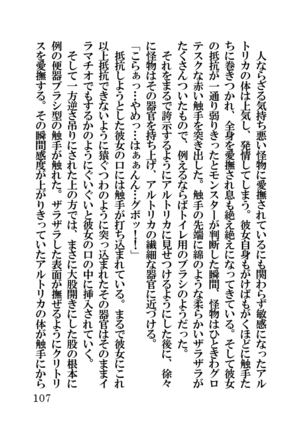 人ならざる気持ち悪い怪物に愛撫されているにも関わらず敏感になったアル
トリカの体は上気し、発情してしまう。彼女自身もがけばもがくほどに触手た
ちに巻きつかれ、全身を愛撫され息も絶え絶えになってきている。そして彼女
の抵抗が一通り弱りきったとモンスターが判断した瞬間、怪物はひときわグロ
テスクな赤い触手を突き出した。触手の先端に綿のような柔らかザラザラが
たくさんついたもので、例えるならばトイレ用のブラシのようだった。
それをまるで誇示するようにアルトリカに見せつけるようにした後に、徐々
に怪物はその器官を持ち上げ、アルトリカの繊細な器官に近づける。
「こらぁっ…やめっ…はぁぁんん…グボッ…！」
抵抗しようとした彼女の口には触手が打ち込まれている。まるで彼女にこれ
以上抵抗できないように猿ぐつわのように突っ込まれたその器官はそのままイ
ラマチオでもするかのようにぐいぐいと彼女の口の中に挿入されていく。
そして一方逆さ吊りにされた上の方では、まさに大股開きにした股の根本に
例の便器ブラシ型の触手が触れた。ザラザラした表面が撫ぜるようにクリトリ
スを愛撫する。その瞬間感度が上がりきっていたアルトリカの体が触手にから
107